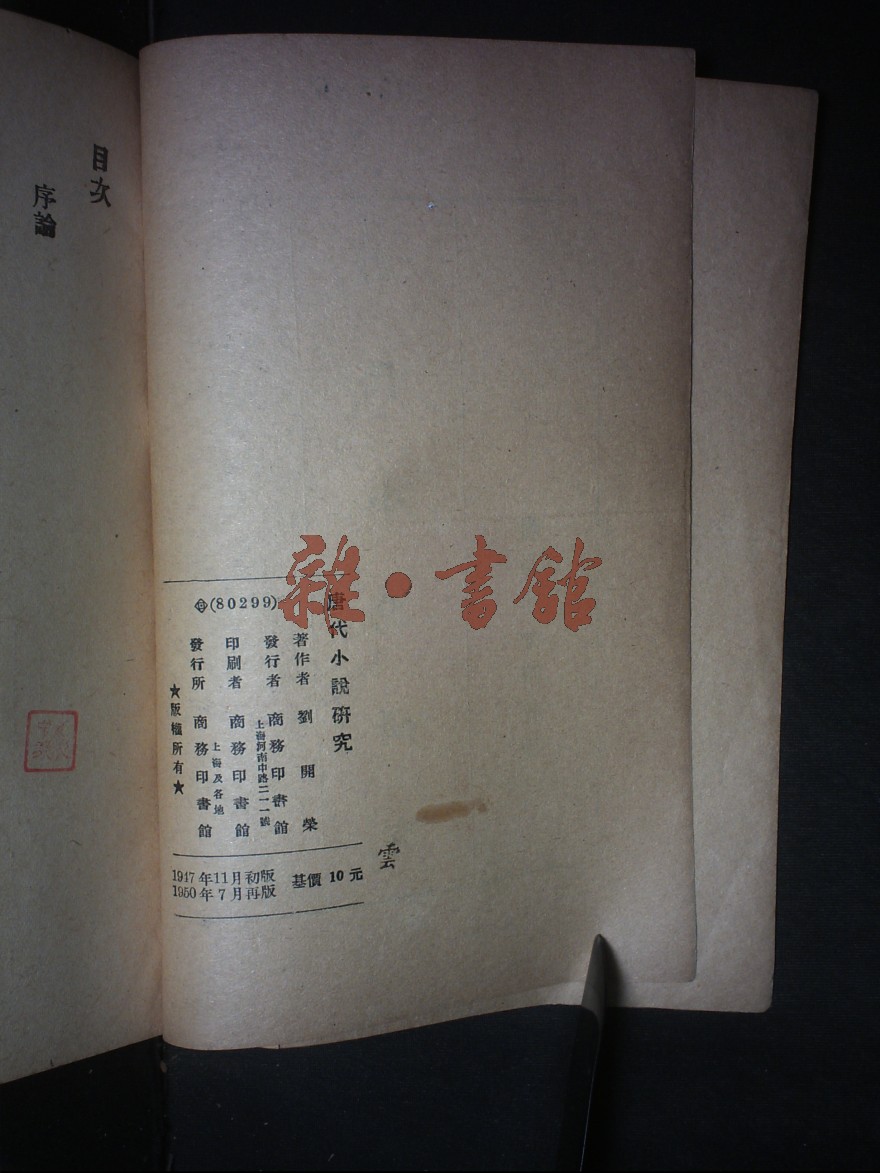 目次
序論
雜・書館
唐代小說研究
著作者 劉開榮
發行者 商務印書館
上海河南中路二一一號
印刷者 商務印書館
發行所 商務印書館
上海及各地
★版權所有★
(80299)
基價 10 元
1947 年 11 月初版
1950 年 7 月再版
雲